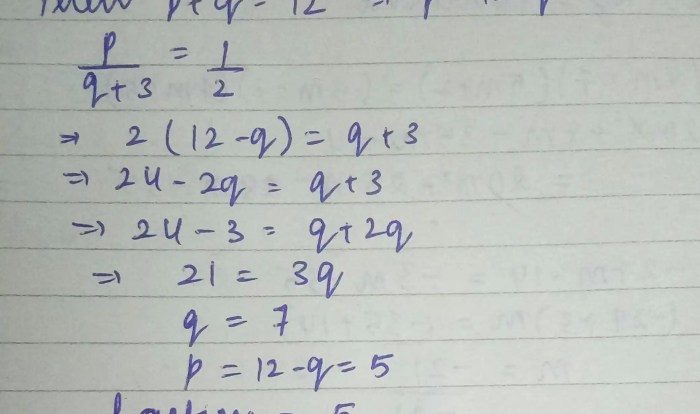 p+q = 12
p/(q+3) = 1/2
⇒ 2(12-q) = q+3
⇒ 24-2q = q+3
⇒ 24-3 = q+2q
⇒ 21 = 3q
q = 7
p = 12-q = 5
= 5